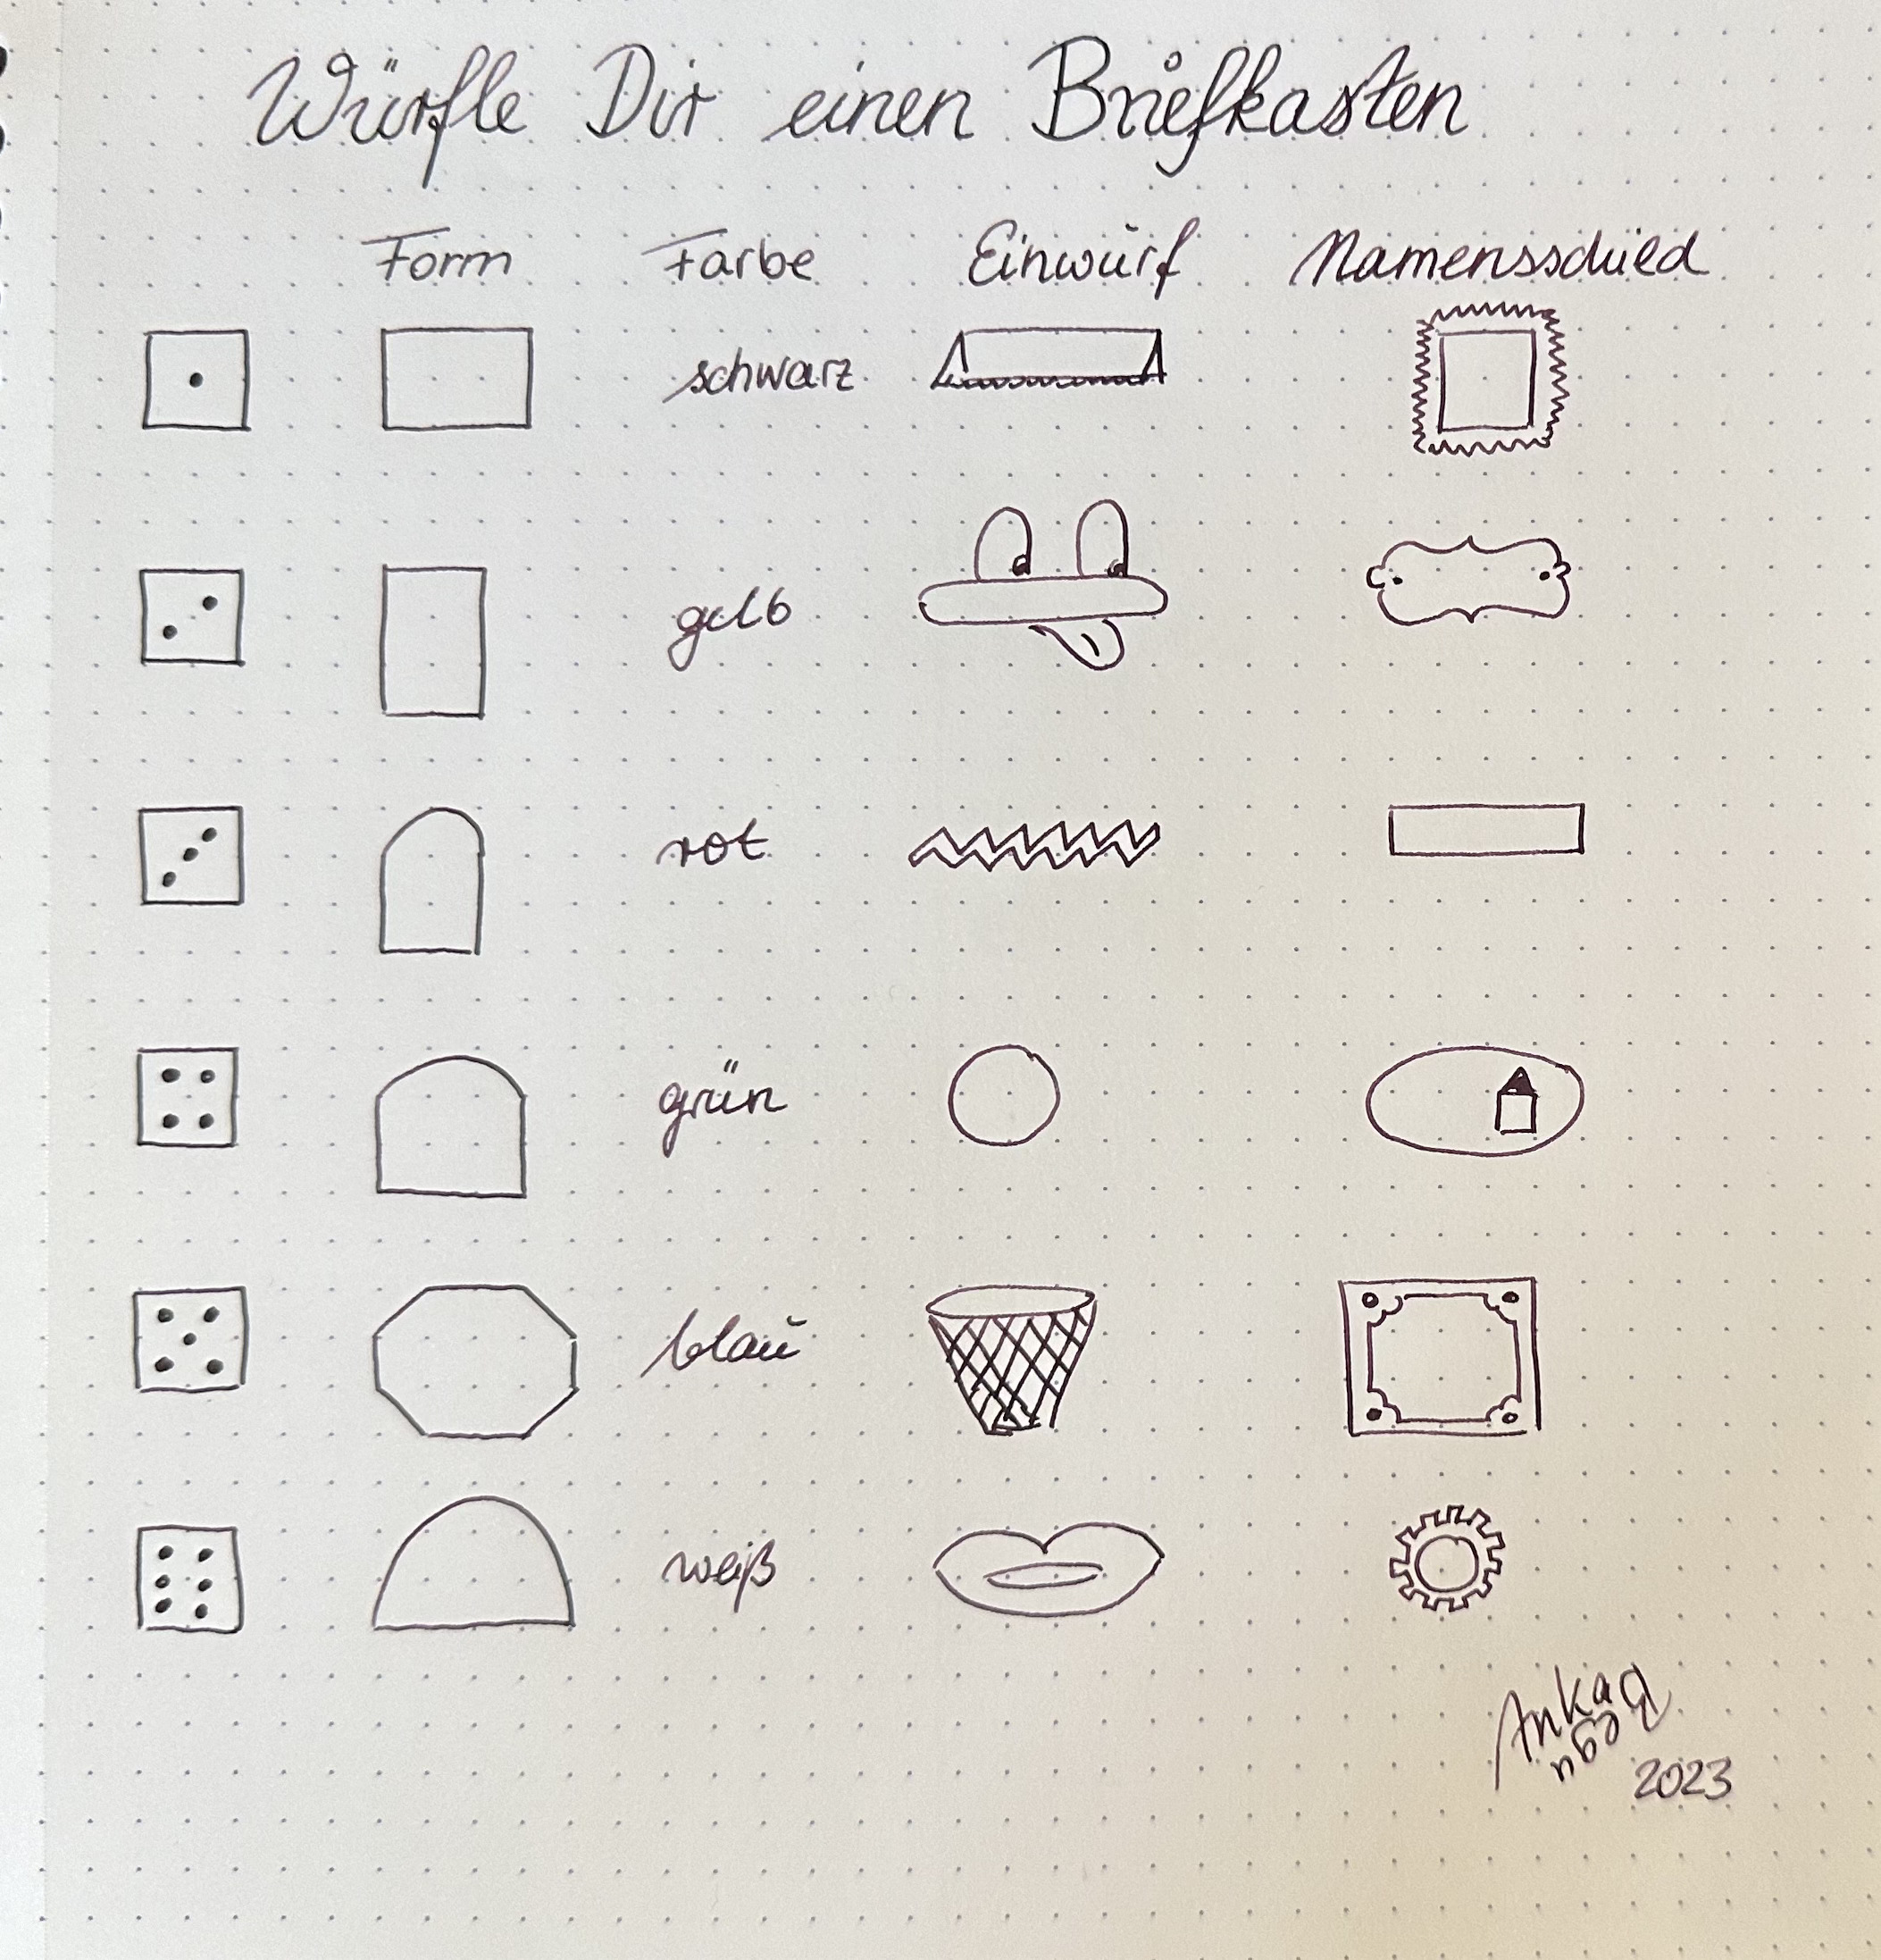 Würfle Dir einen Briefkasten
Form Farbe Einwurf Namensschild
schwarz
gelb
rot
grün
blau
weiß
2023